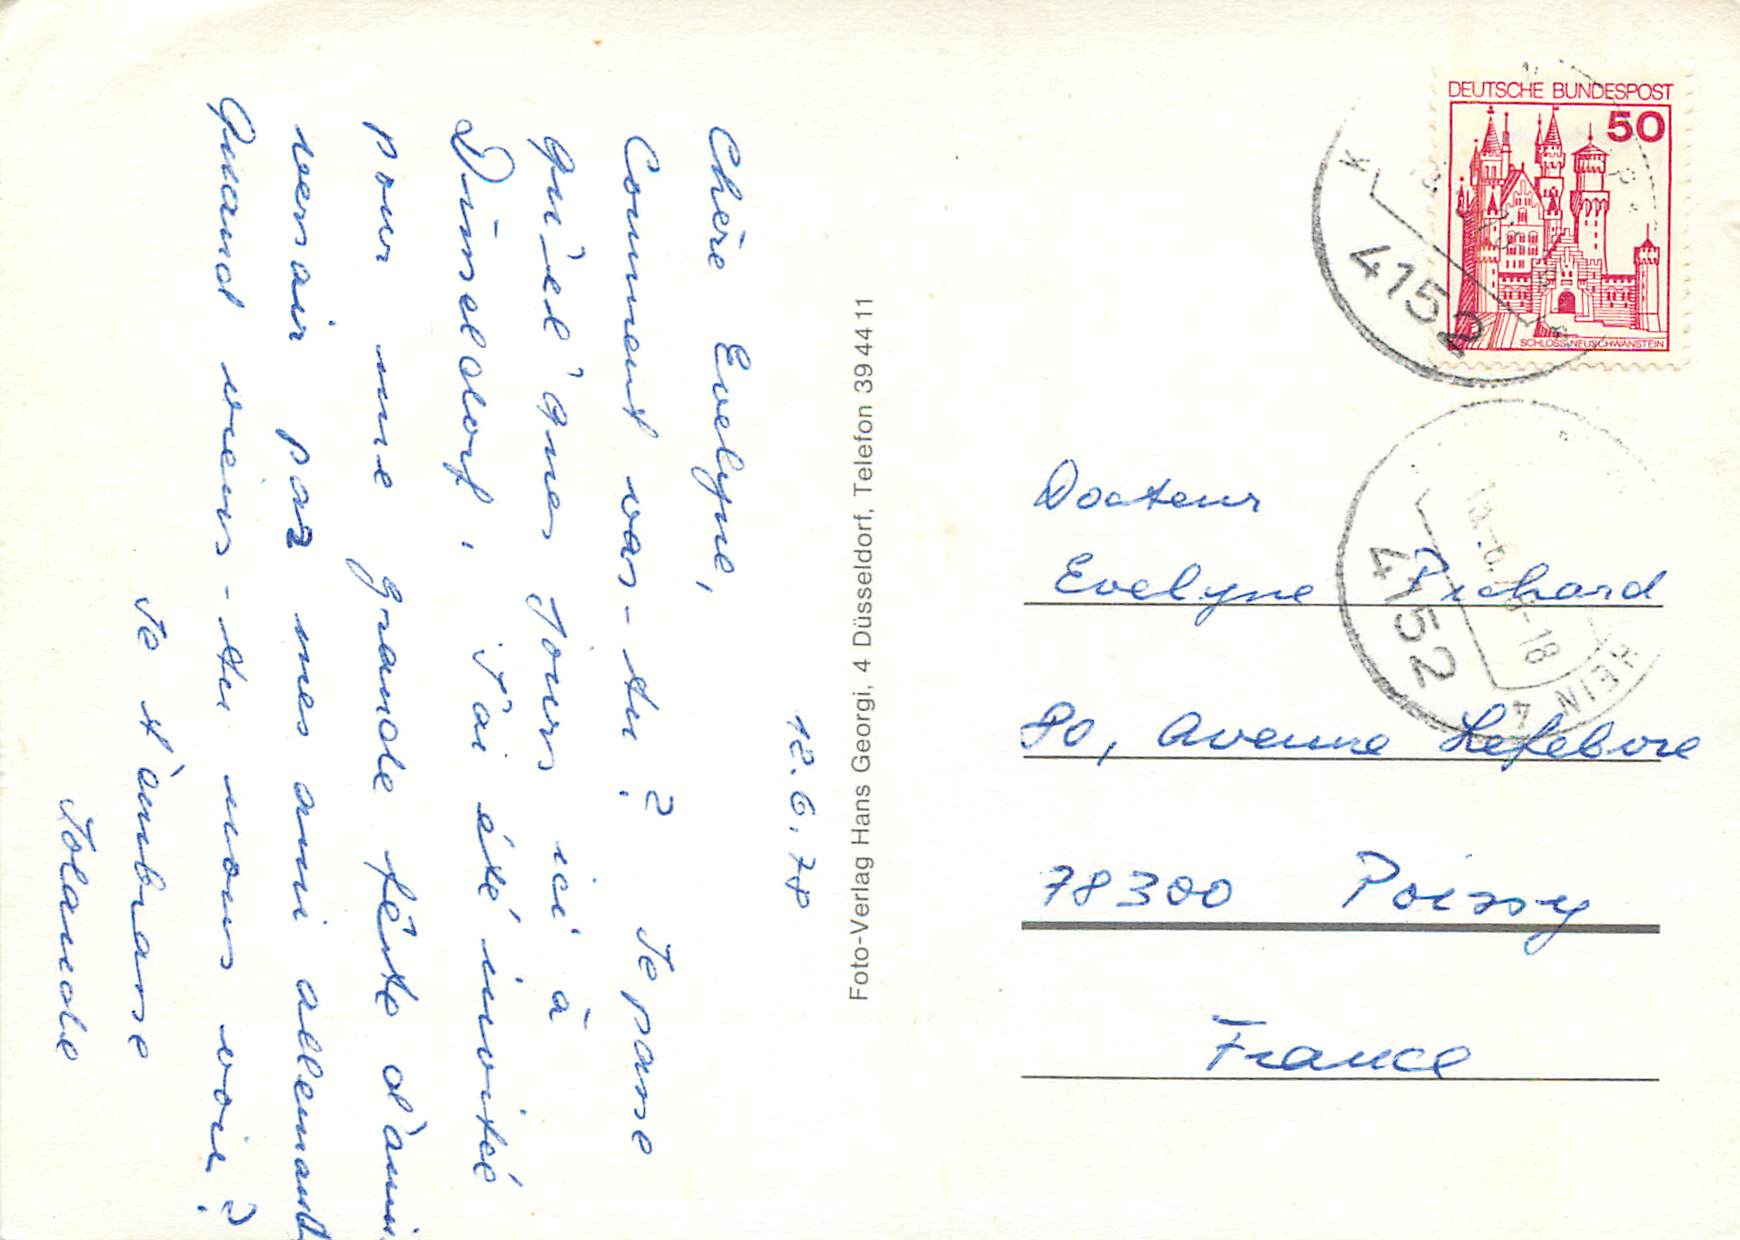 12.6.78
Chère Evelyne,
Comment vas-tu? Je passe
quelques jours ici à
Dùsseldorf. J'ai été invité
pour une grande fête d'anni
versair par mes ami allemand
Quand viens-tu nous voir?
Je t'ambrasse
Jolande
Foto-Verlag Hans Georgi, 4 Düsseldorf, Telefon 39 44 11
DEUTSCHE BUNDESPOST
50
SCHLOSS NEUSCHWANSTEIN
4152
4152
-18
RHEIN 4
Docteur
Evelyne Richard
80, Avenue Lefebvre
78300 Poissy
France